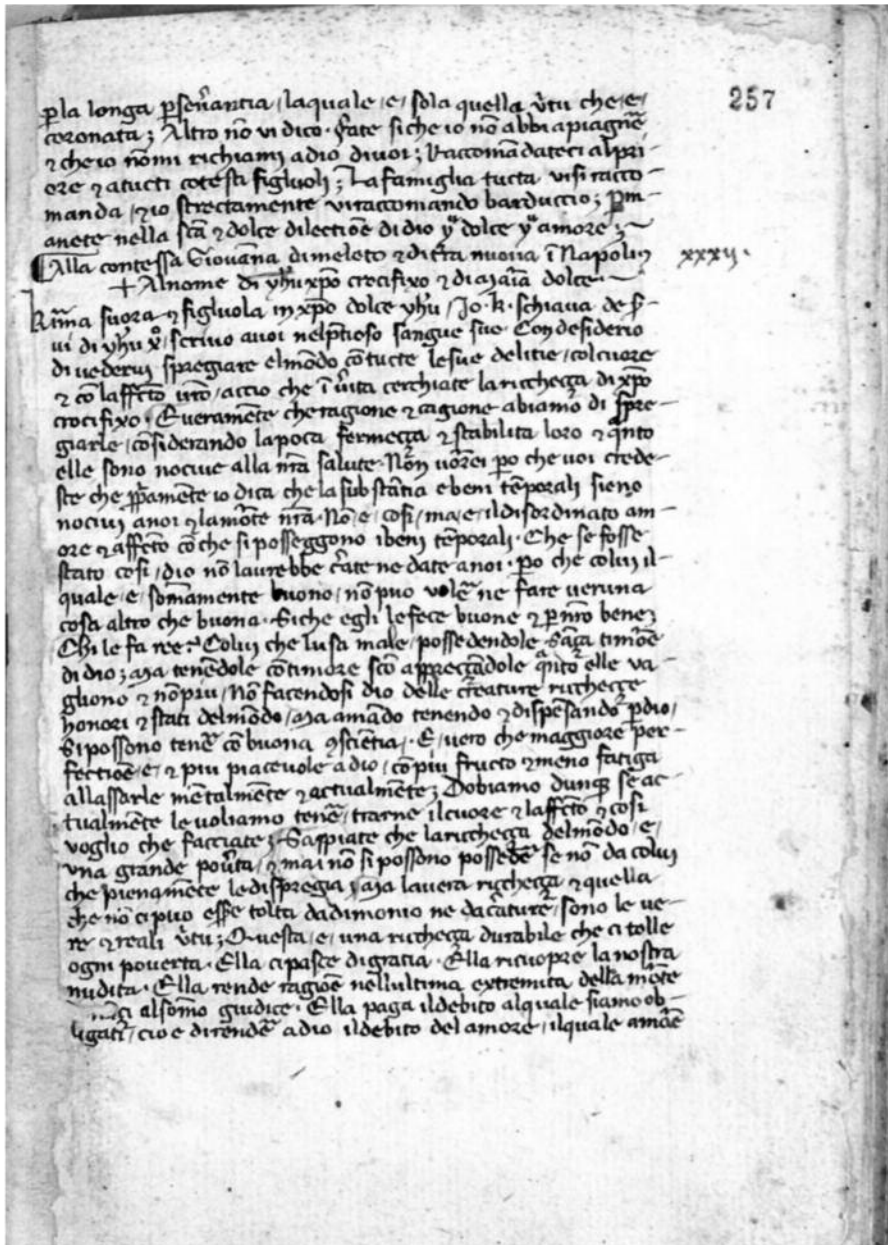 257
p̱la longa p̱seũantia / laquale / e / sola quella ũtu che / e /
coronata; Altro nõ vi dico · fate si che io nõ abbi a piagnẽ
⁊ che io nõ mi richiami adio divoi; Raccomãdateci alpri-
ore ⁊ atucti cotesti figluoli; La famiglia tucta visi racco-
manda / ⁊ io strectamente viraccomando barduccio; p̱m-
anete nella sc̃a ⁊ dolce dilectiõe di dio yũ dolce yũ amore ;~
Alla contessa Giovãna dimeleto ⁊ diterra nuova ĩ Napoli
xxxij.
+ Alnome di yhũ xp̃o crocifixo ⁊ di maĩa dolce ~
Kr̃ma suora ⁊ figluola in xp̃o dolce yhũ / Jo · K · schiava de s̃-
vi di yhũ xõ / scrivo avoi nelp̃tioso sangue suo · Con desiderio
di vedervi spregiare elmõdo cõ tucte lesue delitie / colcuore
⁊ cõ laffecto vr̃o / accio che ĩ ṽita cerchiate la richeça di xp̃o
crocifixo · E veramẽte che ragione ⁊ cagione abiamo di spre-
giarle / cõsiderando lapoca fermeçça ⁊ stabilita loro ⁊ q̃nto
elle sono nocive alla nr̃a salute · Nõn vorrei p̱o che voi crede-
ste che pp̃amente io dica che la substãtia e beni tẽporali sieno
nocivi anoi ⁊ lamorte nr̃a · Nõ e / cosi / ma / e / il disordinato am-
ore ⁊ affecto cõ che si posseggono ibeni tẽporali · Che se fosse
stato cosi / dio nõ laurebbe c̃ate ne date anoi · p̱o che colui il-
quale / e / som̃amente buono / nõ puo volẽ ne fare veruna
cosa altro che buona · Siche egli lefece buone ⁊ p̱ nr̃o bene;
Chi le fa ree? Colui che lusa male / possedendole sãça timore
di dio; Ma tenẽdole cõ timore sc̃o appreççãdole q̃nto elle va-
gliono ⁊ nõ piu / Nõ facendosi dio delle creature richeççe
honori ⁊ stati delmõdo / Ma amãdo tenendo ⁊ dispẽsando p̱ dio /
Si possono tenẽ cõ buona ꝯsciẽtia · E / vero che maggiore per-
fectiõe / e / ⁊ piu piacevole adio / cõ piu fructo ⁊ meno fatiga
allassarle mẽtalmẽte ⁊ actualmẽte; Dobiamo dunq̃ se ac-
tualmẽte le voliamo tenẽ / trarne ilcuore ⁊ laffecto ⁊ cosi
voglio che facciate; Sappiate che la richeça delmõdo / e /
una grande poṽta / ⁊ mai nõ si possono possedẽ se nõ da colui
che pienam̃ete ledispregia / Ma lavera richeça ⁊ quella
che nõ ci puo esse tolta dadimonio ne dac̃ature / sono le ve-
re ⁊ reali ṽtu; Questa / e / una richeça durabile che ci tolle
ogni poverta · Ella ci pasce digratia · Ella ricuopre la nostra
nudita · Ella rende ragiõe nellultima extremita della morte
alsõmo giudice · Ella paga ildebito alquale siamo ob-
ligati / cio e direndẽ adio ildebito del amore / ilquale amore